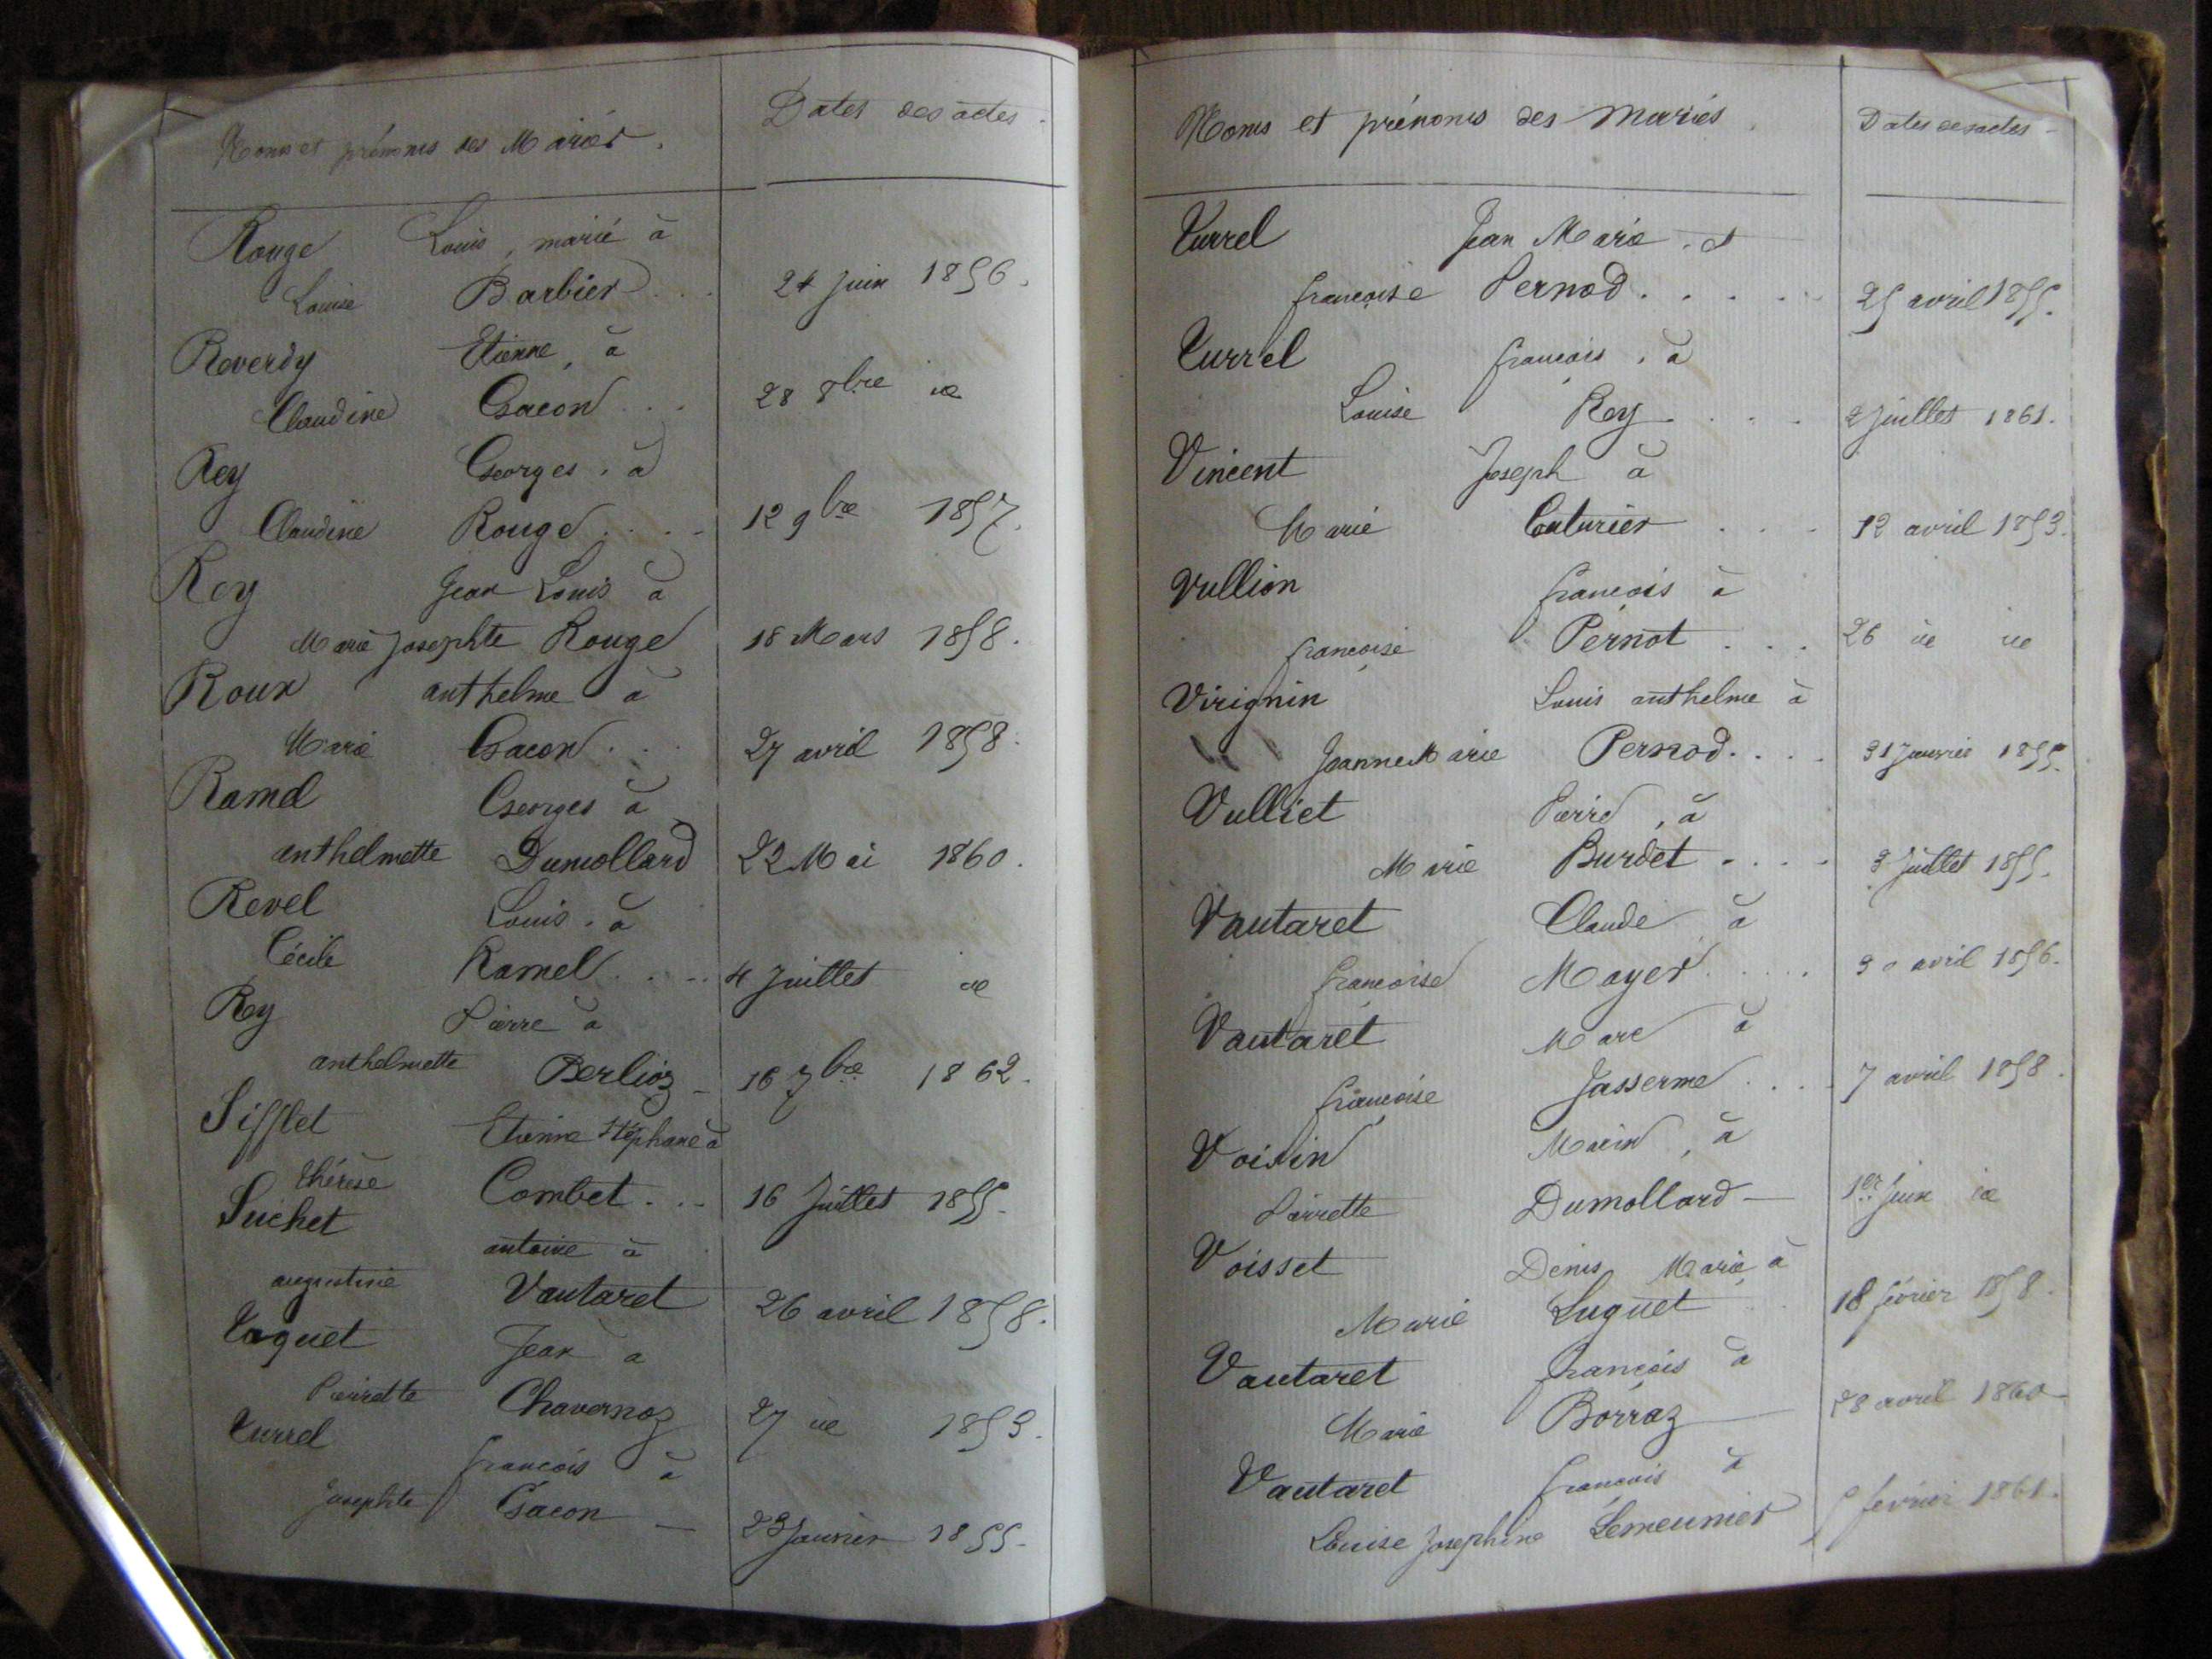 Noms et prénoms des Mariés. Dates des actes.
Rouge Louis, marié à
Louise Barbier ... 24 juin 1856.
Reverdy Etienne, à
Claudine Gacon ... 28 8bre id
Rey Georges, à
Claudine Rouge .... 12 9bre 1857.
Rey Jean Louis à
Marie Josephte Rouge 18 Mars 1858.
Roux anthelme à
Marie Gacon ... 27 avril 1858.
Ramel Georges à
anthelmette Dumollard 22 Mai 1860.
Revel Louis, à
Cécile Ramel .... 4 Juillet id
Rey Pierre à
anthelmette Berlioz - 16 7bre 1862.
Sifflet Etienne Stéphane à
thérèse Combet ... 16 Juillet 1855.
Suchet antoine à
augustine Vautaret 26 avril 1858.
Taquet Jean à
Pierrette Chavernoz 27 id 1853.
Turrel françois à
Josephte Gacon — 23 Janvier 1855.
Noms et prénoms des Mariés. Dates des actes -
Turrel Jean Marie, à
françoise Pernod ..... 25 avril 1855.
Turrel françois, à
Louise Rey .... 2 juillet 1861.
Vincent Joseph à
Marie Couturier ... 12 avril 1853.
Vullion françois à
françoise Pernot ... 26 id id
Virignin Louis anthelme à
Jeanne Marie Pernod .... 31 Janvier 1855.
Vulliet Pierre, à
Marie Burdet .... 3 Juillet 1855.
Vautaret Claude à
françoise Moyer ..... 30 avril 1856.
Vautaret Marc à
françoise Jasserme .... 7 avril 1858.
Voisin Marin, à
Pierrette Dumollard — 1er Juin id
Voisset Denis Marie à
Marie Luguet .. 18 février 1858.
Vautaret françois à
Marie Borraz — 28 avril 1860 -
Vautaret françois à
Louise Joséphine Lemeunier 5 février 1861.